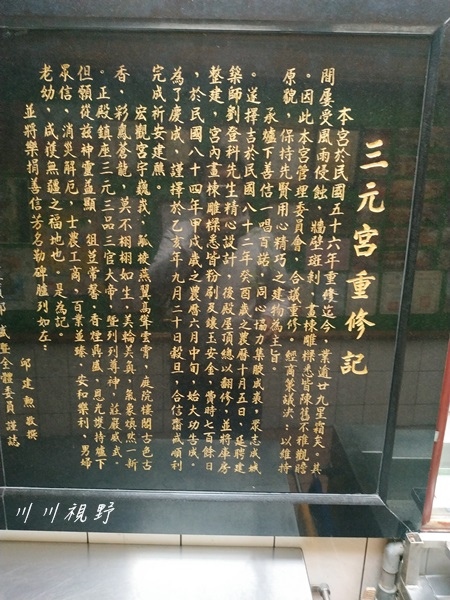 三元宮重修記
本宮於民國五十六年重修迄今，業逾廿九星霜矣。其
間屢受風雨侵蝕，牆壁斑剝，畫棟雕樑悉皆陳舊不雅觀瞻
。因此本宮管理委員會，合議重修。經商策議決：以維持
原貌，保持先賢用心精巧之建物為主旨。
承爐下善信一唱百諾，同心協力集腋成裘，眾志成城
。遂擇吉於民國八十二年癸酉歲之農曆十月五日，延聘建
築師劉登科先生精心設計，後殿屋頂總以翻修，並將庫房
整建，宮內畫棟雕樑悉皆粉刷及鑲玉安金，費時七百餘日
，於民國八十四年甲戌歲之農曆六月中旬，始大功告成。
為了慶成，謹擇於乙亥年九月二十日穀旦，合信齋戒順利
完成祈安建醮。
宏觀宮宇巍峩，觚棱燕翼高聳雲霄，庭院樓閣古色古
香，彩鳳蒼龍，莫不栩栩如生，美輪美奐，氣象煥然一新
。正殿鎮座三元三品三官大帝，暨列列尊神，莊嚴威武。
但願從茲神靈益顯，俎荳常馨，香煙鼎盛，恩光護持爐下
眾信，消災解厄，士農工商，百業並臻，安和樂利，男婦
老幼，咸獲無疆之福地也。是為記。
並將樂捐善信芳名勒碑臚列如左：
邱建勳 敬撰
暨全體委員 謹誌
川川視野